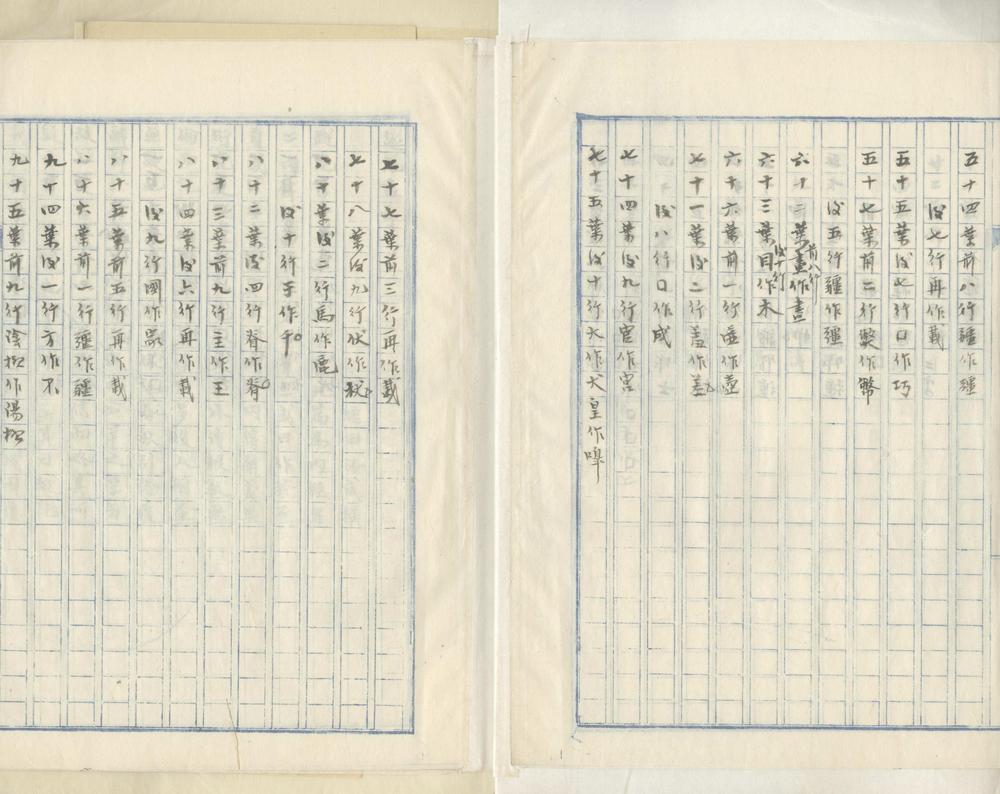 五十四葉前八行疆作彊
後七行再作載
五十五葉後七行口作巧
五十七葉前二行獘作幣
後五行疆作彊
六十二葉前八行畫作晝
六十三葉後十行目作木
六十六葉前一行壷作壺
七十一葉後二行羞作差
後八行口作成
七十四葉後九行官作宮
七十五葉後十行大作犬皇作嘷
七十七葉前三行再作載
七十八葉後九行伏作
八十葉後二行馬作
後十行于作干
八十二葉後四行脊作脊
八十三葉前九行主作王
八十四葉後六行再作載
後九行國作
八十五葉前五行再作載
八十六葉前一行疆作疆
九十四葉後一行方作不
九十五葉前九行陰作陽